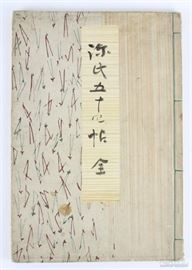 源氏五十四帖 全